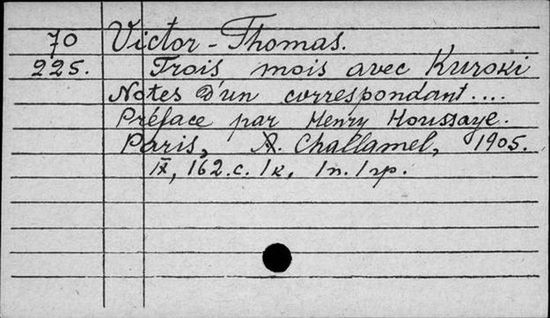 70 Victor-Thomas.
225. Trois mois avec Kuroki
Notes D'un correspondant....
Préface par Henry Houssaye.
Paris, A. Challamel, 1905.
IX, 162.c. 1к, 1п. 1 гр.